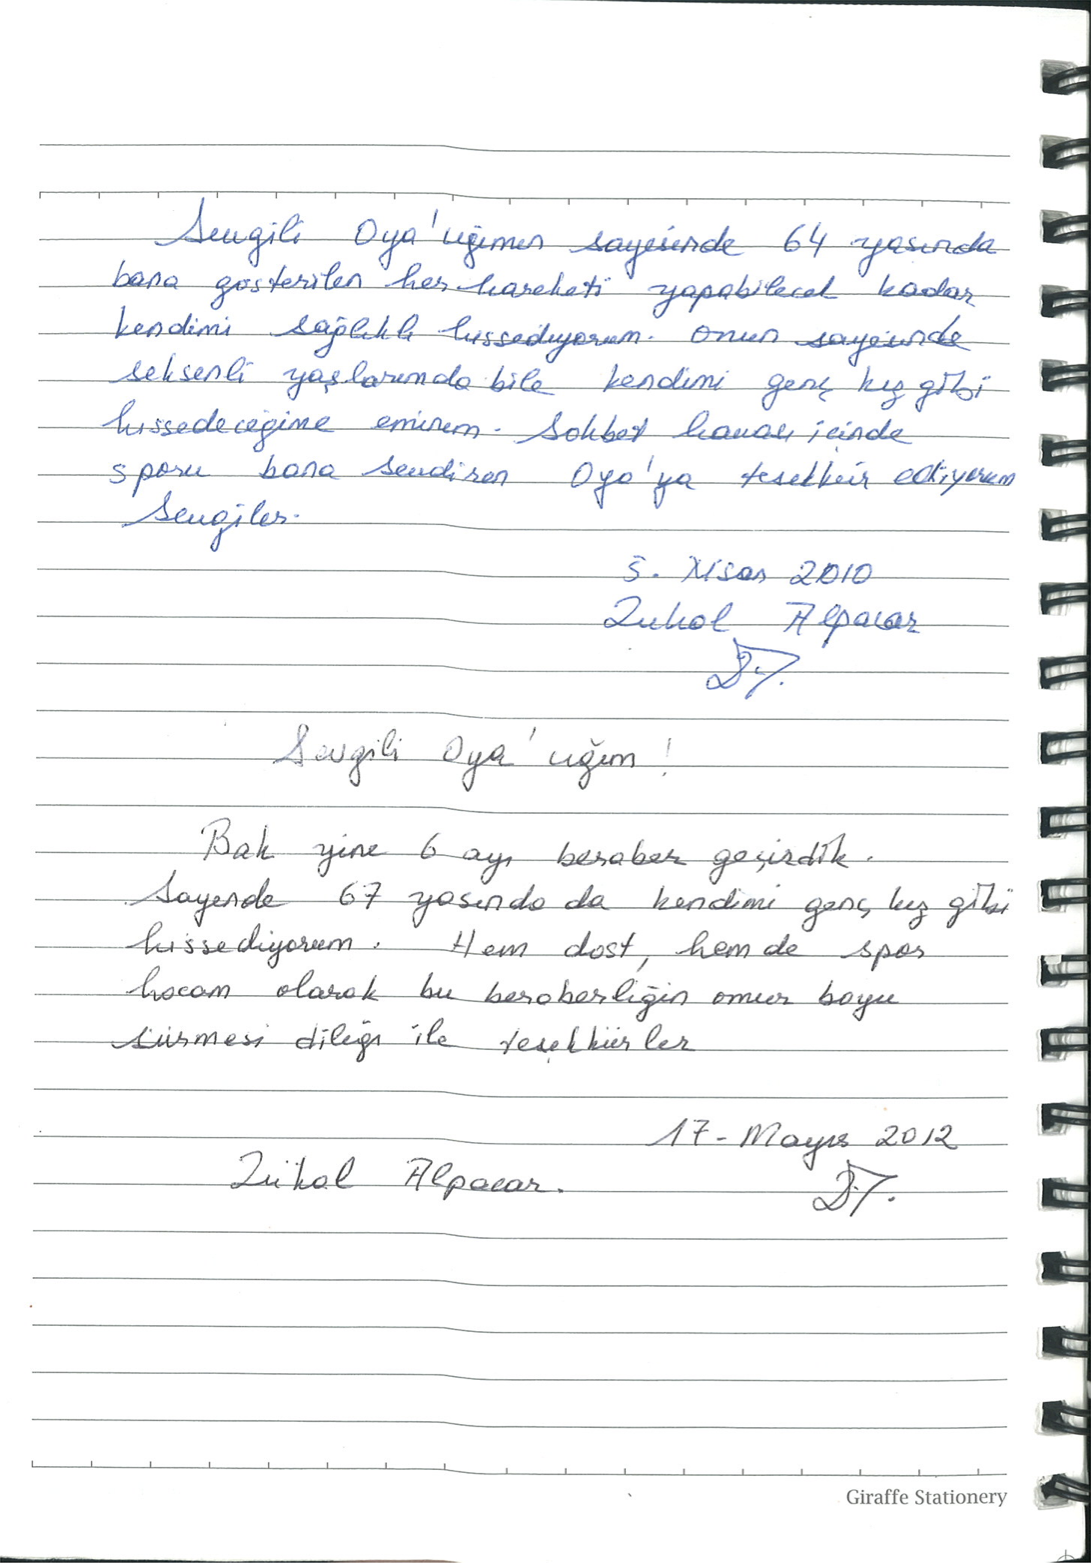 Sevgili Oya'cığımın sayesinde 64 yaşında
bana gösterilen her hareketi yapabilecek kadar
kendimi sağlıklı hissediyorum. Onun sayesinde
seksenli yaşlarımda bile kendimi genç kız gibi
hissedeceğime eminim. Sohbet havası içinde
sporu bana sevdiren Oya'ya teşekkür ediyorum
Sevgiler.
5. Nisan 2010
Zuhal Alpacar
Sevgili Oya'cığım!
Bak yine 6 ayı beraber geçirdik.
Sayende 67 yaşında da kendimi genç kız gibi
hissediyorum. Hem dost, hem de spor
hocam olarak bu beraberliğin omur boyu
sürmesi dileği ile teşekkürler
17 - Mayıs 2012
Zühal Alpacar.
Giraffe Stationery